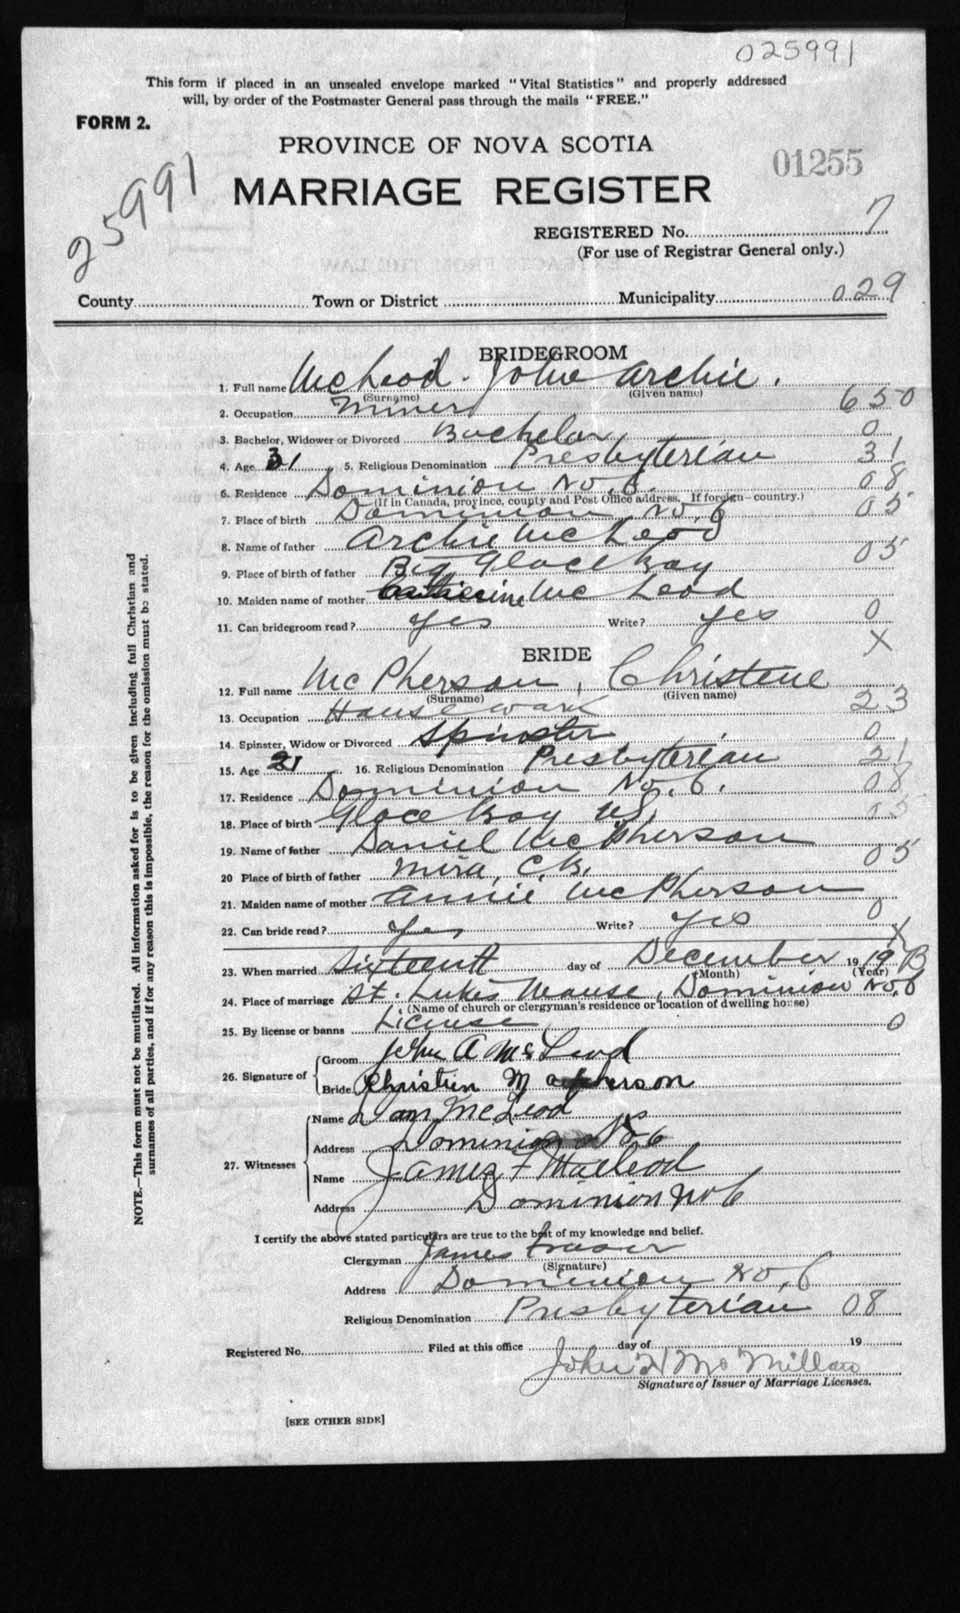 025991
This form if placed in an unsealed envelope marked "Vital Statistics" and properly addressed
will, by order of the Postmaster General pass through the mails "FREE."
FORM 2.
PROVINCE OF NOVA SCOTIA
01255
25991
MARRIAGE REGISTER
REGISTERED No. 7
(For use of Registrar General only.)
County Town or District Municipality 029
BRIDEGROOM
1. Full name McLeod. John Archie.
(Surname) (Given name)
2. Occupation Miner 650
3. Bachelor, Widower or Divorced Bachelor 0
4. Age 31 5. Religious Denomination Presbyterian 31
6. Residence Dominion No. 6. 08
(If in Canada, province, county and Post Office address. If foreign—country.)
7. Place of birth Dominion No. 6 05
8. Name of father Archie McLeod
9. Place of birth of father Big Glace Bay 05
10. Maiden name of mother Catherine McLeod
11. Can bridegroom read? yes Write? yes 0
X
BRIDE
12. Full name McPherson, Christene
(Surname) (Given name)
13. Occupation Housework 23
14. Spinster, Widow or Divorced Spinster 0
15. Age 21 16. Religious Denomination Presbyterian 21
17. Residence Dominion No. 6. 08
18. Place of birth Glace Bay NS. 05
19. Name of father Daniel McPherson
20 Place of birth of father Mira, C.B. 05
21. Maiden name of mother Annie McPherson
22. Can bride read? yes Write? yes 0
X
23. When married Sixteenth day of December 19 19 B
(Month) (Year)
24. Place of marriage St. Lukes Manse, Dominion No. 6
(Name of church or clergyman's residence or location of dwelling house)
25. By license or banns License 0
26. Signature of
Groom John A McLeod
Bride Christien Macpherson
27. Witnesses
Name Dan McLeod
Address Dominion No 6
Name James F Macleod
Address Dominion No 6
I certify the above stated particulars are true to the best of my knowledge and belief.
Clergyman James Fraser
(Signature)
Address Dominion No. 6
Religious Denomination Presbyterian 08
Registered No. Filed at this office day of 19
John N McMillan
Signature of Issuer of Marriage Licenses.
[SEE OTHER SIDE]
NOTE.—This form must not be mutilated. All information asked for is to be given including full Christian and
surnames of all parties, and if for any reason this is impossible, the reason for the omission must be stated.